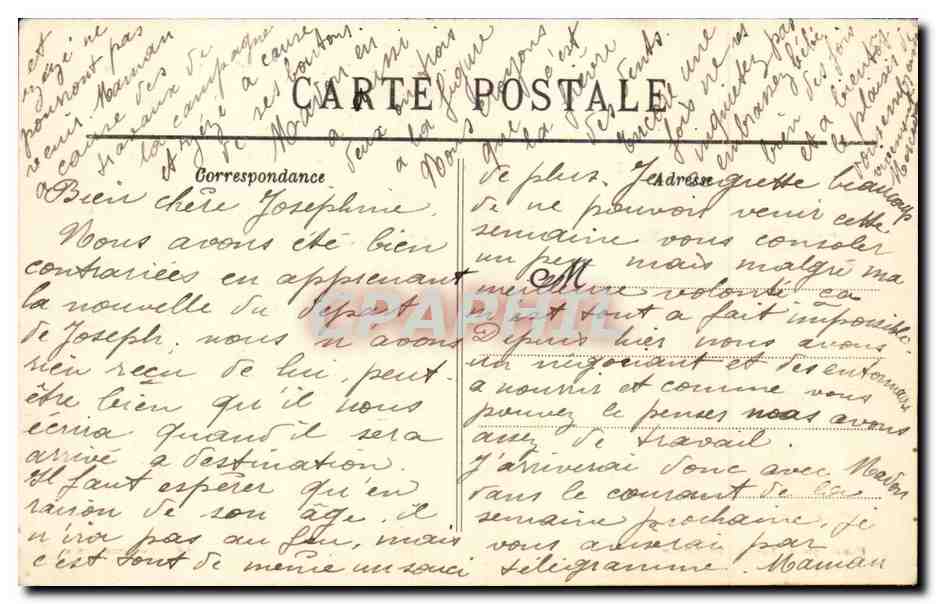 CARTE POSTALE
Correspondance
Adresse
M
CPAPHIL
Bien chère Joséphine.
Nous avons été bien
contrariées en apprenant
la nouvelle du départ
de Joseph. nous n'avons
rien reçu de lui, peut-
être bien qu'il nous
écrira quand il sera
arrivé a destination.
Il faut espérer qu'en
raison de son age, il
n'ira pas au feu, mais
c'est tout de même un souci
de plus. Je regrette beaucoup
de ne pouvoir venir cette
semaine vous consoler
un peu mais malgré ma
meilleure volonté ça
m'est tout a fait impossible.
Depuis hier nous avons
un négociant et des
a nourrir et comme vous
pouvez le penser nous avons
assez de travail.
J'arriverai donc avec Madon
dans le courant de la
semaine prochaine, je
vous aviserai par
télégramme. Maman
et
zézé ne
pourront pas
venir. Maman
a cause des
travaux de
la campagne
et zézé a cause
de ses boutons.
Madon en
a aussi
deux ou pois
a la figure
Nous croyons
que c'est
la fièvre
des dents.
encore une
fois ne vs
inquiétez pas
embrassez bébé
bien des fois
et a bientot
le plaisir de